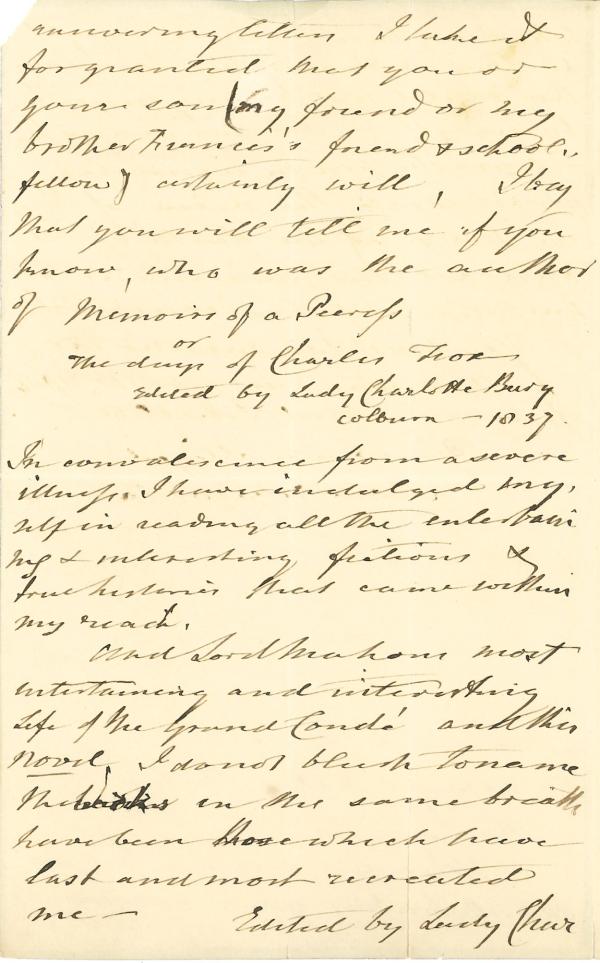 answering letters I take it
for granted that you or
your son (my friend or my
brother Francis's friend & school,
fellow) certainly will, I beg
that you will tell me if you
know, who was the author
of Memoirs of a Peeress
or
The days of Charles Fox
Edited by Lady Charlotte Bury
Colburn — 1837.
In convalescence from a severe
illness. I have indulged my,
self in reading all the entertain
ing & interesting fictions &
true histories that came within
my reach.
And Lord Mahons most
entertaining and interesting
Life of the Grand Condé and this
novel, I do not blush to name
the books in the same breath
have been those which have
last and most recreated
me — Edited by Lady Char